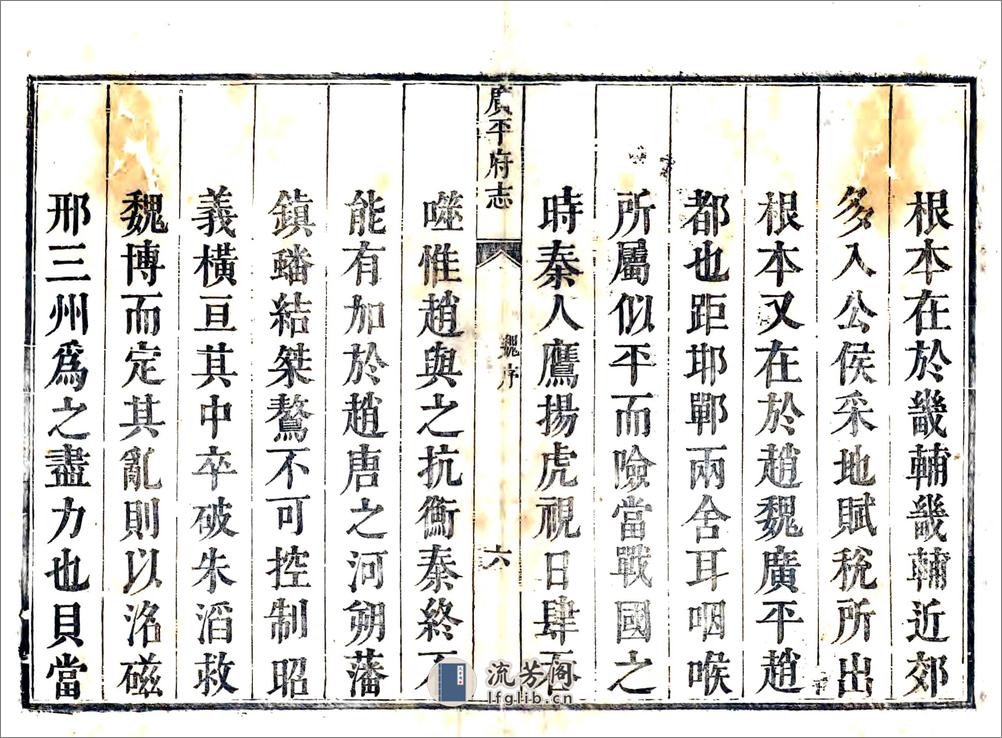 根本在於畿輔畿輔近郊
多入公侯采地賦稅所出
根本又在於趙魏廣平趙
都也距邯鄲兩舍耳咽喉
所屬似平而險當戰國之
時秦人鷹揚虎視日肆
廣平府志
魏序
六
噬惟趙與之抗衡秦終不
能有加於趙唐之河朔藩
鎮蟠結桀驁不可控制昭
義橫亘其中卒破朱滔救
魏博而定其亂則以洺磁
邢三州為之盡力也貝當
流芳阁
lfglib.cn